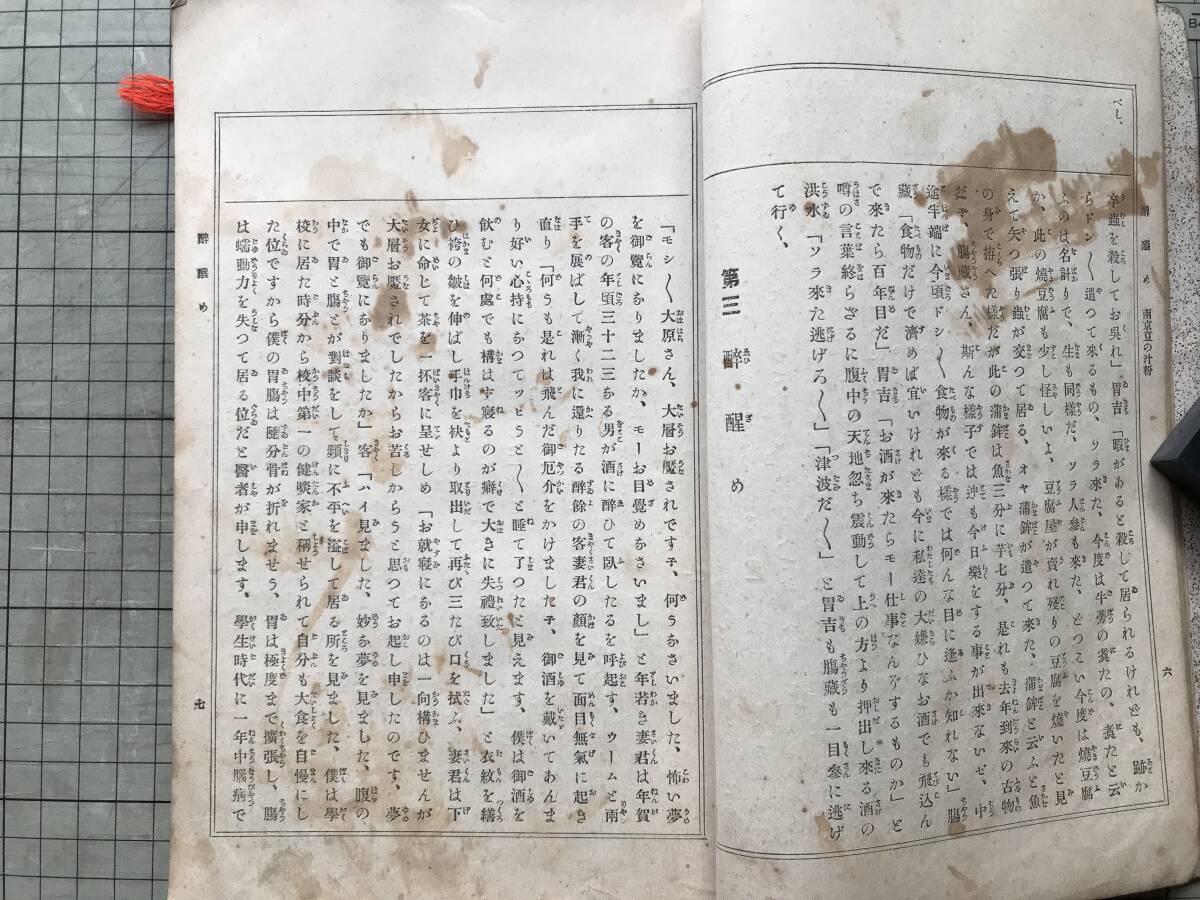 べし、
醉醒め 南京豆の汁粉
六
卒蟲を殺してお吳れ」 胃吉「暇があると殺して居られるけれども、跡か
らドシ〳〵遣つて來るもの、ソラ來た、今度は牛蒡の煮たの、煮たと云
ふのは名計りで、生も同樣だ、ソラ人參も來た、どつこい今度は燒豆腐
か、此の燒豆腐も少し怪しいよ、豆腐屋が賣れ殘りの豆腐を燒いたと見
えて矢つ張り蟲が交つて居る、オヤ蒲鉾が遣つて來た、蒲鉾と云ふと魚
の身で拵へた樣だが此の蒲鉾は魚三分に芋七分、是れも去年到來の古物
だ子、腸藏さん、斯んな樣子では迚も今日樂をする事が出來ないぜ、中
途半端に今頃ドシ〳〵食物が來る樣では何んな目に逢ふか知れない」腸
藏「食物だけで濟めば宜いけれども今に私達の大嫌ひなお酒でも飛込ん
で來たら百年目だ」胃吉「お酒が來たらモー仕事なんぞするものか」と
噂の言葉終らざるに腹中の天地忽ち震動して上の方より押出し來る酒の
洪水「ソラ來た逃げろ〳〵」「津波だ〳〵」と胃吉も腸藏も一目參に逃げ
て行く、
第三 醉醒め
「モシ〳〵大原さん、大層お魘されです子、何うなさいました、怖い夢
を御覽になりましたか、モーお目覺めなさいまし」と年若き妻君は年賀
の客の年頃三十二三なる男が酒に醉ひて臥したるを呼起す、ウームと兩
手を展ばして漸く我に還りたる醉餘の客妻君の顏を見て面目無氣に起き
直り「何うも是れは飛んだ御厄介をかけました子、御酒を戴いてあんま
り好い心持になつてツヒうと〳〵と睡て了つたと見えます、僕は御酒を
飮むと何處でも構はず寢るのが癖で大きに失禮致しました」と衣紋を繕
ひ袴の皺を伸ばし手巾を袂より取出して再び三たび口を拭ふ、妻君は下
女に命じて茶を一杯客に呈せしめ「お就寢になるのは一向構ひませんが
大層お魘されでしたからお苦しからうと思つてお起し申したのです、夢
でも御覽になりましたか」客「ハイ見ました、妙な夢を見ました、腹の
中で胃と腸とが對談をして頻に不平を溢して居る所を見ました、僕は學
校に居た時分から校中第一の健啖家と稱せられて自分も大食を自慢にし
た位ですから僕の胃腸は隨分骨が折れませう、胃は極度まで擴張し、腸
は蠕動力を失つて居る位だと醫者が申します、學生時代に一年中腦病で
醉醒め
七